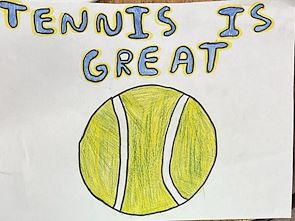 TENNIS IS
GREAT